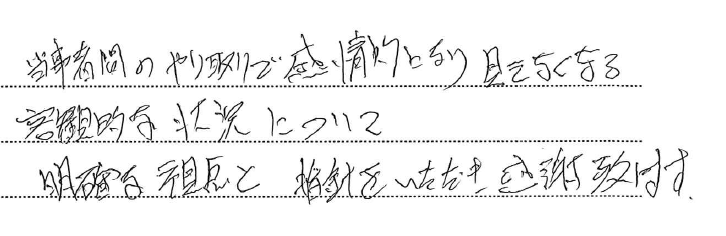 当事者間のやり取りで感情的となり見えなくなる
客観的な状況について
明確な視点と 指針をいただき感謝致します。